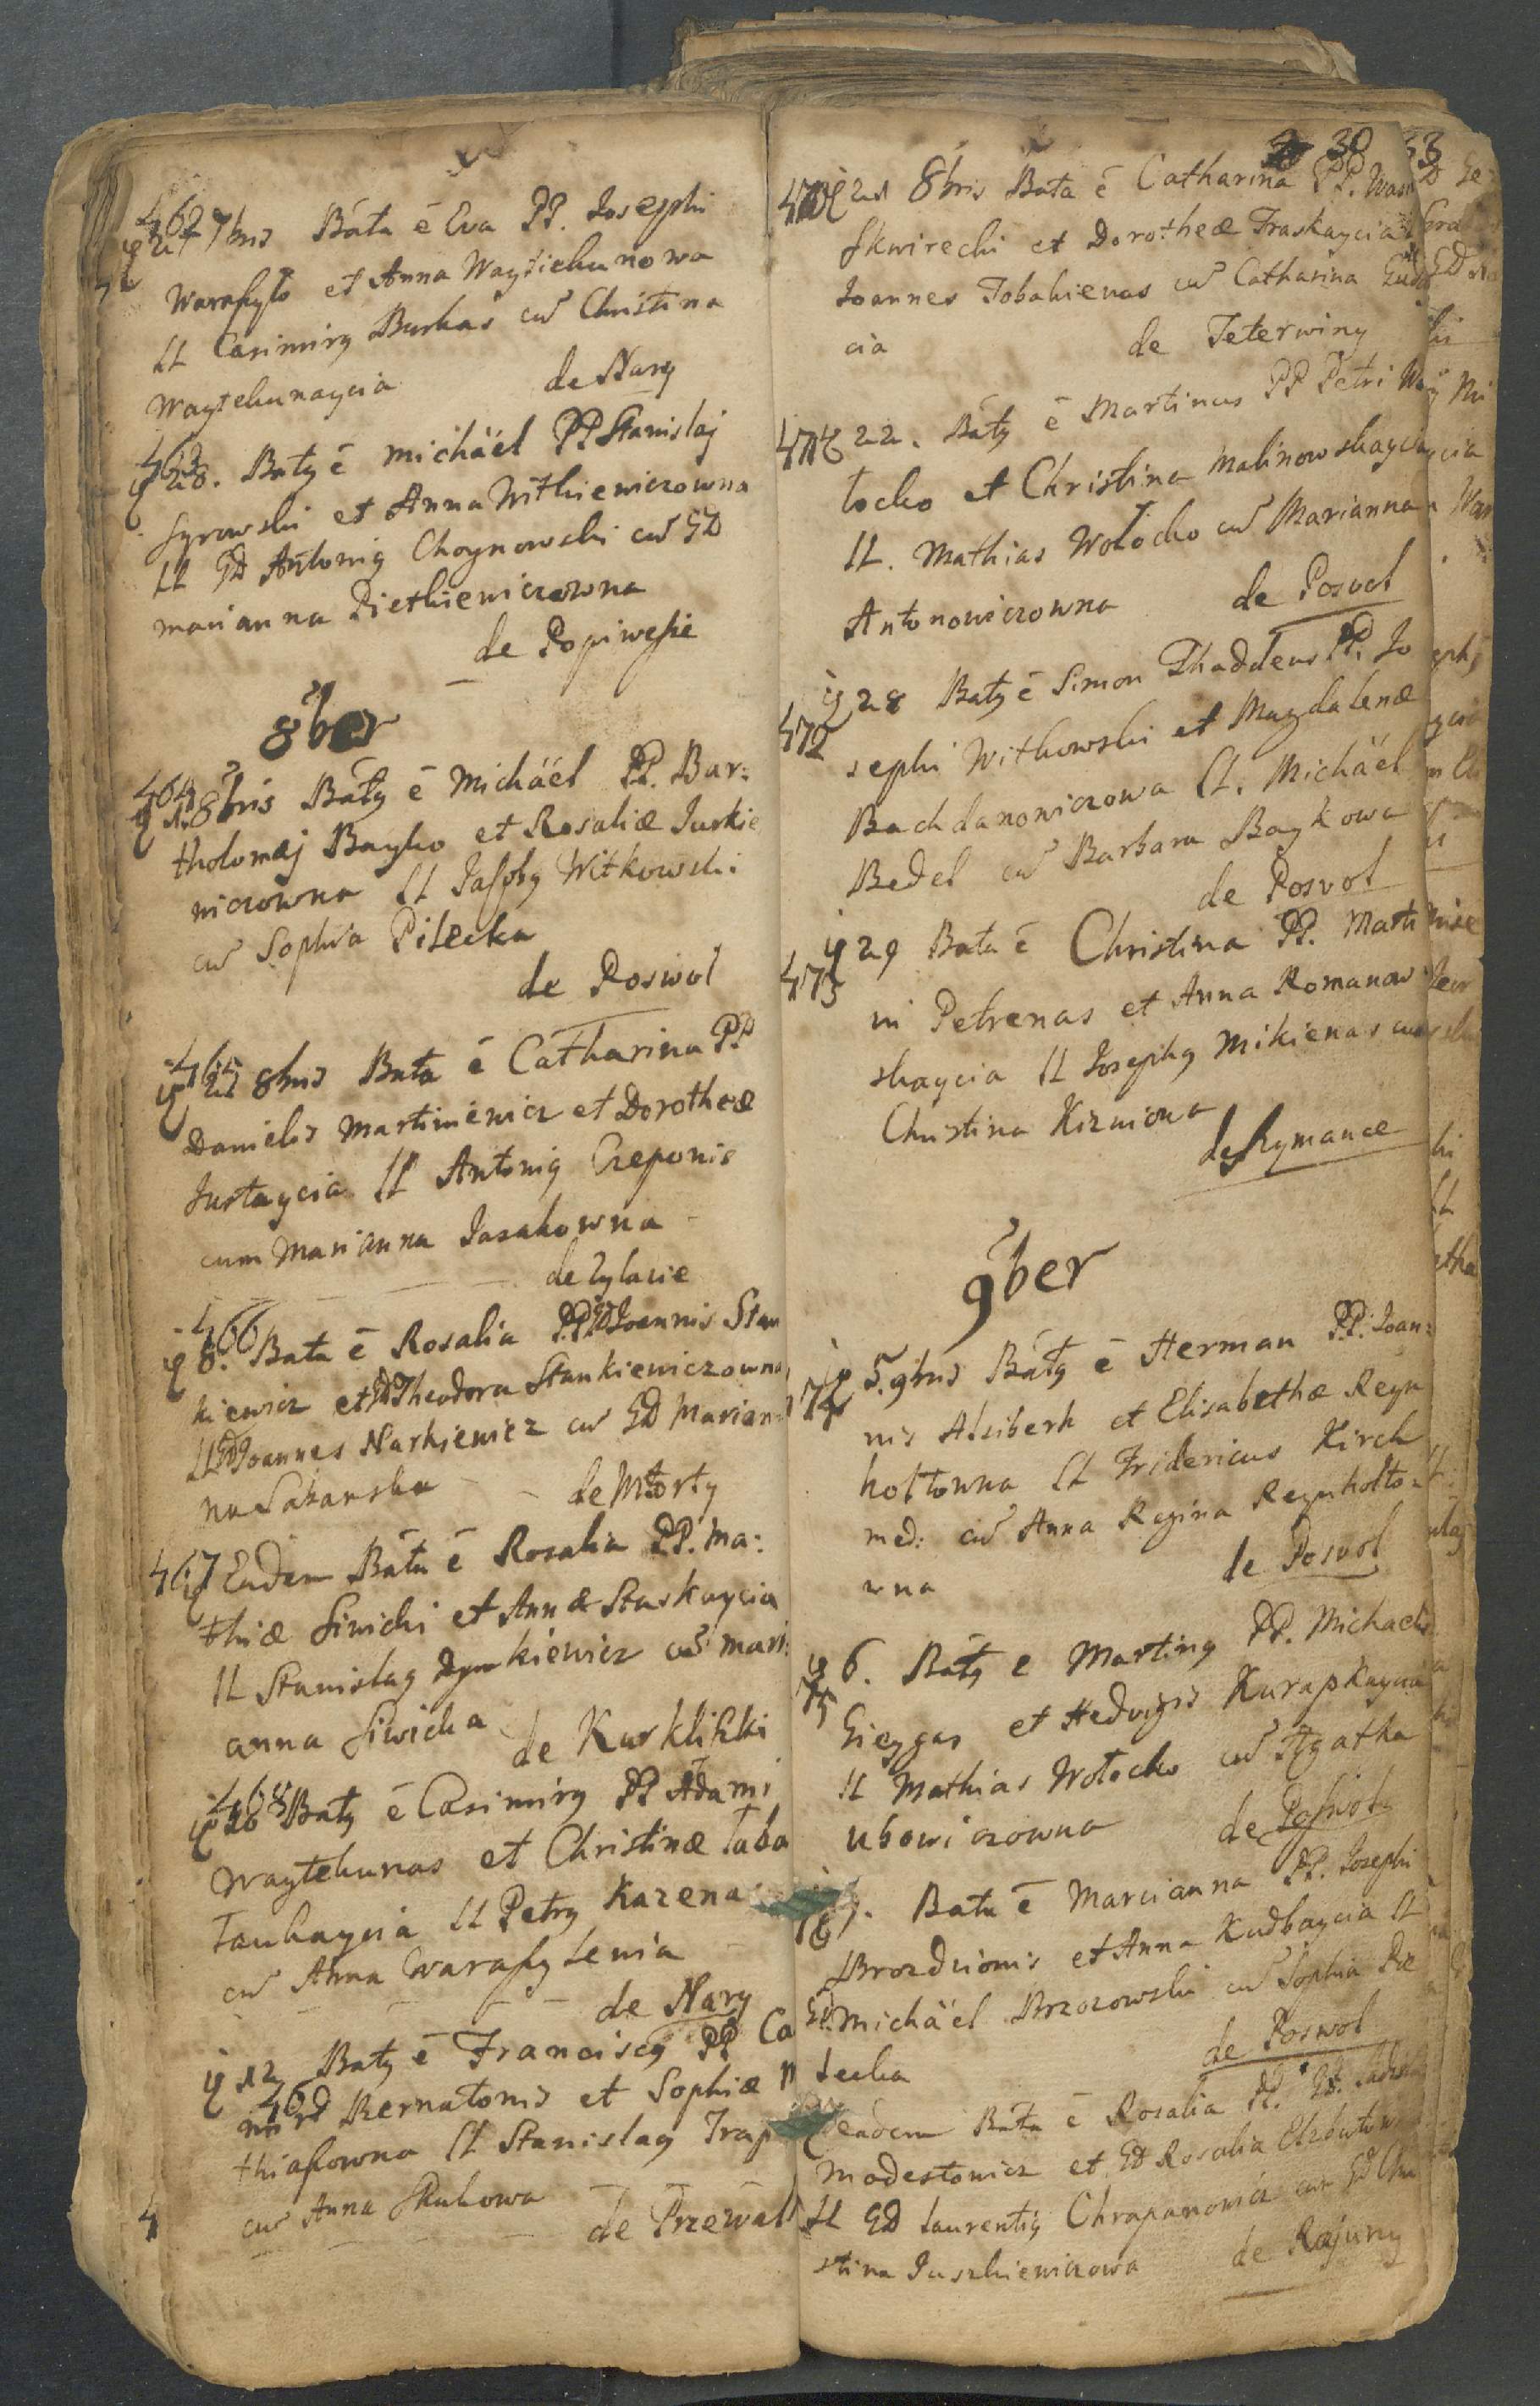 462
27 7bris Bata ē Eva PP. Josephi
Waraszyło et Anna Waytiekunowa
LL Casimirg Burkas cū Christina
Waytekunaycia de Nary
463
28. Batg ē Michäel PP Stanislaj
Syrowski et Anna Witkiewiczowna
LL GD Antonig Choynowski cū GD
Marianna Pietkiewiczowna
de Popiwesie
8ber
464
1. 8bris Batg ē Michäel PP. Bar:
tholomæj Bayko et Rosaliæ Jurkie
wiczowna LL Jasphg Witkowski
cū Sophia Pilecka
de Poswol
465
8bris Bata ē Catharina PP
Danielis Martiniewicz et Dorotheæ
Justaycia LL Antonig Czeponis
cum Marianna Jasakowna
de Zylacie
466
8. Bata ē Rosalia PP. GD Joannis Stan
kiewicz et GD Theodora Stankiewiczowna
LL GD Joannes Narkiewicz cū GD Marian
na Sakanska de Morty
467 Eadem Bata ē Rosalia PP. Ma:
thiæ Siwicki et Annæ Staskaycia
LL Stanislag Dymkiewicz cū Mari:
anna Siwicka de Kurkliszki
468
Batg ē Casimirg PP Adami
Waytekunas et Christinæ Taba
Taukaycia LL Petrg Kazena
cū Anna Waraszylenia
de Nary
12 Batg ē Franciscg PP Ca
469
Bernatonis et Sophiæ
thiaszowna LL Stanislag Trap
cū Anna Skukowa
de Przewal
30 33
470 21 8bris Bata ē Catharina PP.
Skwirecki et Dorotheæ Traskaycia
Joannes Tobakienas cū Catharina
cia de Teterwiny
471 22. Batg ē Martinus PP Petri Wo
łocko et Christina Malinowskaycia
LL. Mathias Wołocko cū Marianna
Antonowiczowna de Posvol
472 28 Batg ē Simon Thaddeus PP. Jo
sephi Witkowski et Magdalenæ
Bachdanowiczowa LL. Michäel
Bedel cū Barbara Baykowa
de Posvol
473 29 Bata ē Christina PP. Marti
ni Petrenas et Anna Romanow
skaycia LL Josephg Mikienas cum
Christina Kizniowa
de Rymance
9ber
474 5. 9bris Batg ē Herman PP. Joan:
nis Alsiberk et Elisabethæ Reyn
holtowna LL Fridericus Kirch
med: cū Anna Regina Reynholto:
wna de Posvol
475 6. Batg ē Marting PP. Michaelis
Gieygas et Hedvigis Kurapkaycia
LL Mathias Wołocko cū Agatha
ubowiczowna de Poswol
7. Bata ē Marcianna PP. Josephi
Brozdcionis et Anna Kudbaycia LL
GD Michäel Brzozowski cū Sophia Pie
lecka de Poswol
eadem Bata ē Rosalia PP. GD.
Modestowicz et GD Rosalia
LL GD Laurentig Chrapanowicz cum GD Chri
stina Juszkiewiczowa de Rajuny